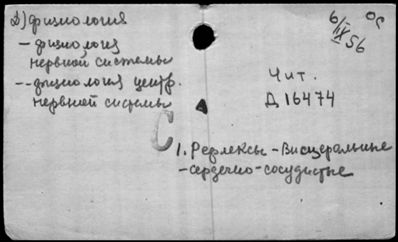 д) физиология
- физиология
нервной системы
-- физиология центр.
нервной системы
6/IX 56
ос
Чит.
Д 16474
С
1. Рефлексы - Висцеральные
- сердечно - сосудистые